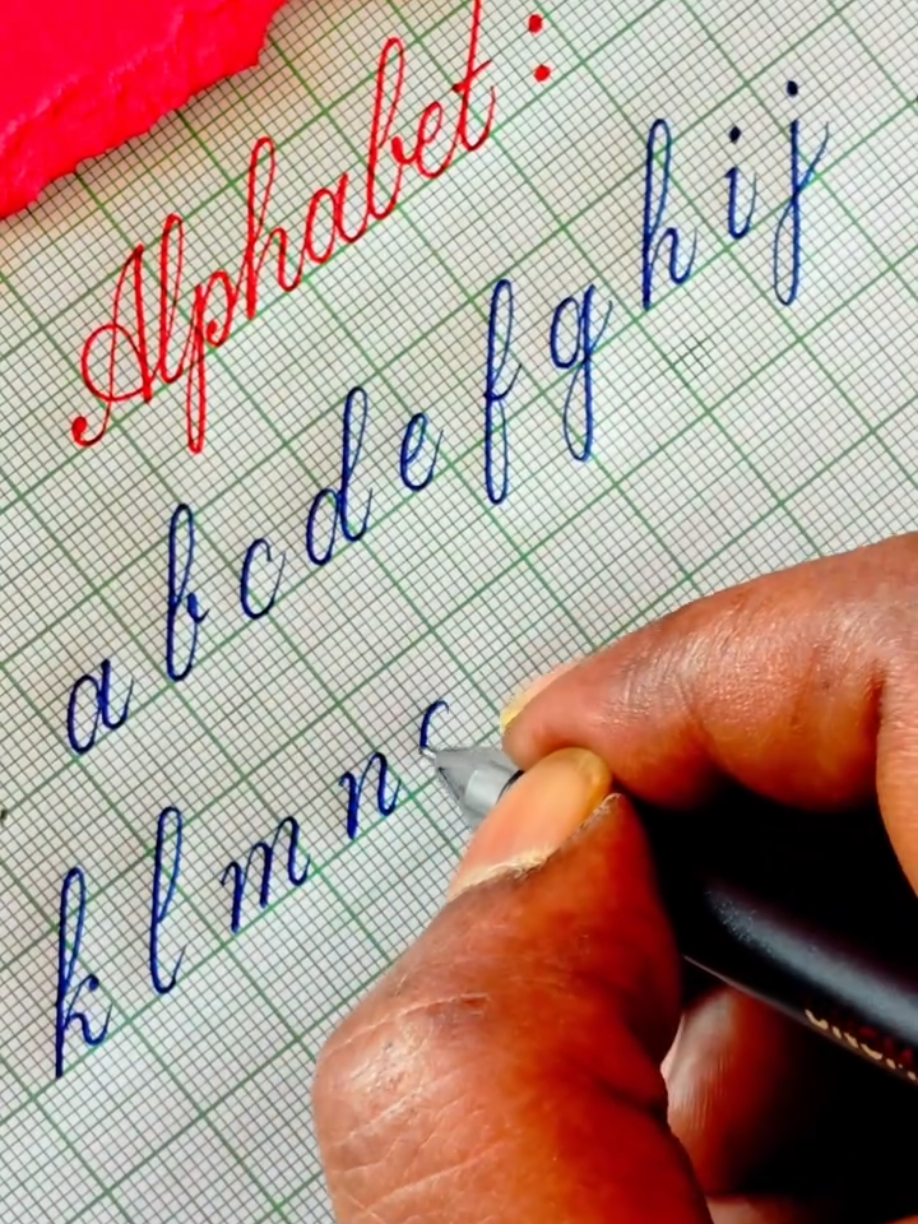 Alphabet:
a b c d e f g h i j
k l m n